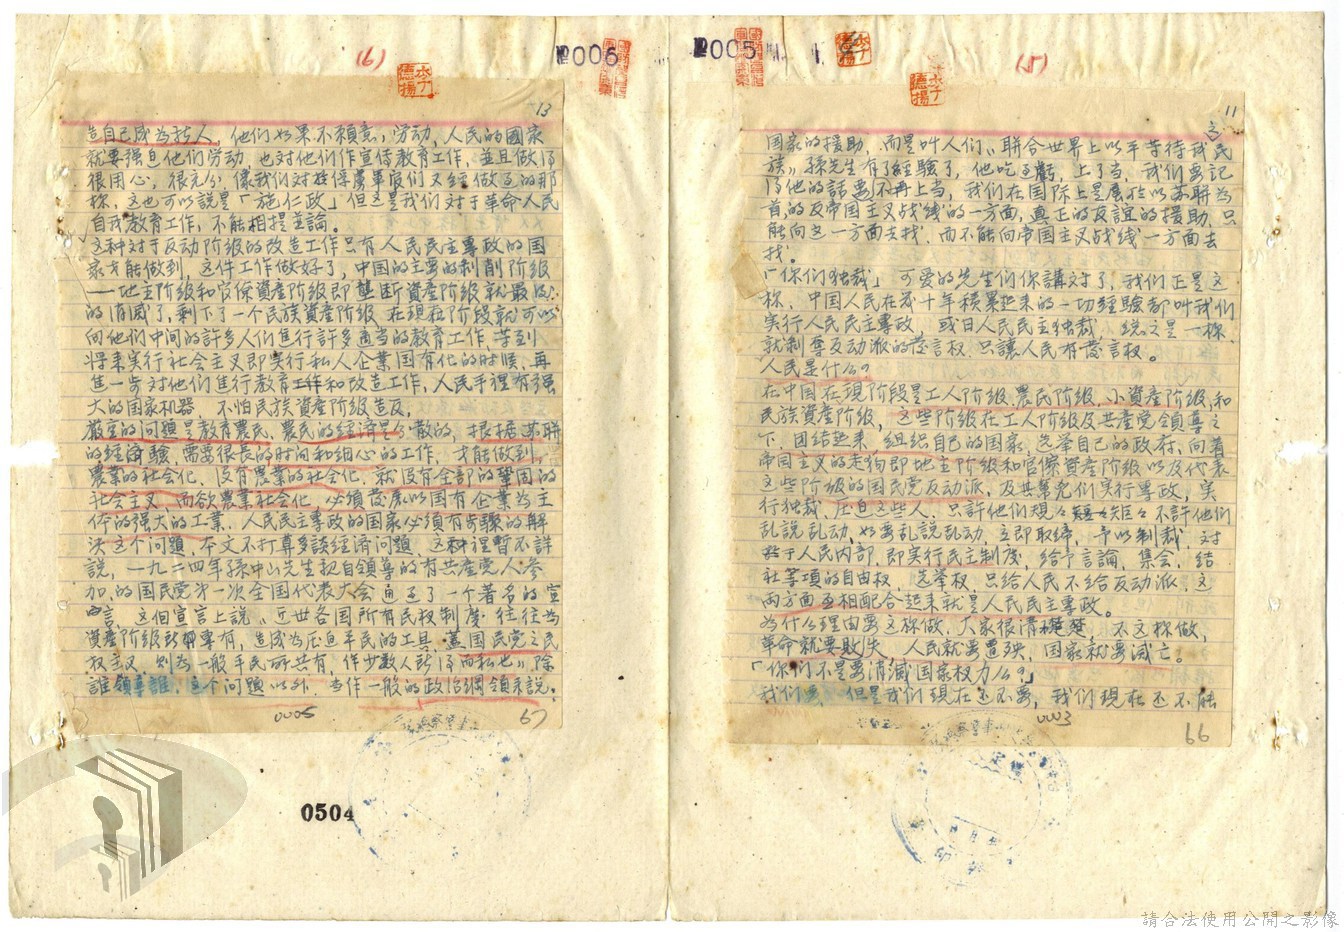 №005
(5)
李德揚
李德揚
11
这
国家的援助，而是叫人们《联合世界上以平等待我民
族》孫先生有了經驗了，他吃过虧，上了当，我们要記
得他的話要不再上当，我们在国际上是属於以苏联为
首的反帝国主义战线的一方面，真正的友誼的援助，只
能向这一方面去找，而不能向帝国主义战线一方面去
找。
「你们独裁」可爱的先生们你講对了，我们正是这
样，中国人民在几十年積累起来的一切經驗都叫我们
实行人民民主專政，或曰人民民主独裁，總之是一样，
就剥夺反动派的發言权，只讓人民有發言权。
人民是什么？
在中国在現阶段是工人阶级，農民阶级，小資產阶级，和
民族資產阶级，这些阶级在工人阶级及共產党領導之
下，团结起来，组织自己的国家，选举自己的政府，向着
帝国主义的走狗即地主阶级和官僚資產阶级以及代表
这些阶级的国民党反动派，及其幫兇们实行專政，实
行独裁，压迫这些人，只許他们規々矩々不許他们
乱說乱动，如要乱說乱动，立即取締，予以制裁，对
於于人民内部，即实行民主制度，给予言論，集会，结
社等項的自由权，选举权，只给人民不给反动派，这
兩方面互相配合起来就是人民民主專政。
为什么理由要这样做，大家很清楚，不这样做，
革命就要敗失，人民就要遭殃，国家就要滅亡。
「你们不是要消滅国家权力么？」
我们要，但是我们現在还不要，我们現在还不能
0003
66
№006
(6)
李德揚
13
造自己成为新人，他们如果不願意，劳动，人民的國家
就要强迫他们劳动，也对他们作宣传教育工作，並且做得
很用心，很充分，像我们对於俘虜軍官们又經做过的那
樣，这也可以說是「施仁政」但这是我们对于革命人民
自我教育工作，不能相提並論。
这种对于反动阶级的改造工作只有人民民主專政的国
家才能做到，这件工作做好了，中国的主要的剝削阶级
——地主阶级和官僚資產阶级即壟断資產阶级就最後
的消滅了，剩下了一个民族資產阶级，在現在阶段就可以
向他们中间的許多人们進行許多適当的教育工作，等到
将来实行社会主义即实行私人企業国有化的时候，再
進一步对他们進行教育工作和改造工作，人民手裡有强
大的国家机器，不怕民族資產阶级造反，
嚴重的问題是教育農民，農民的經济是分散的，根据苏联
的經济驗，需要很長的时间和细心的工作，才能做到，
農業的社会化，没有農業的社会化，就没有全部的鞏固的
社会主义，而欲農業社会化，必須發展以国有企業为主
体的强大的工業，人民民主專政的国家必須有步驟的解
决这个问題，本文不打算多談經済问題，这裡暫不詳
說，一九二四年孫中山先生親自領導的有共產党人參
加，的国民党第一次全国代表大会通过了一个著名的宣
言，这個宣言上說《近世各国所有民权制度往往为
資產阶级所專有，造成为压迫平民的工具，蓋国民党之民
权主义，则为一般平民所共有，非少数人所得而私也》除
誰領導誰，这个问題以外，当作一般的政治綱領来說，
0005
67
0504
請合法使用公開之影像